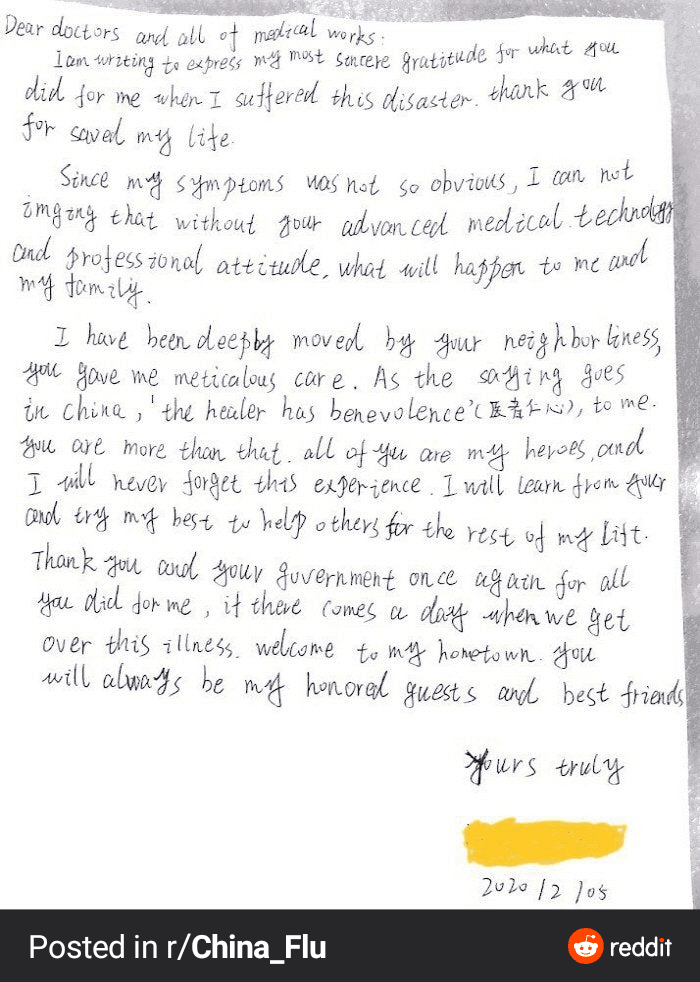 Dear doctors and all of medical works:
I am writing to express my most sincere gratitude for what you
did for me when I suffered this disaster. thank you
for saved my life.
Since my symptoms was not so obvious, I can not
imging that without your advanced medical technology
and professional attitude, what will happen to me and
my family.
I have been deeply moved by your neighborliness,
you gave me meticalous care. As the saying goes
in china, 'the healer has benevolence'(医者仁心), to me.
you are more than that. all of you are my heroes, and
I will never forget this experience. I will learn from your
and try my best to help others for the rest of my lift.
Thank you and your government once again for all
you did for me, if there comes a day when we get
over this illness. welcome to my hometown. you
will always be my honored guests and best friends
Yours truly
2020/2/05
Posted in r/China_Flu
reddit